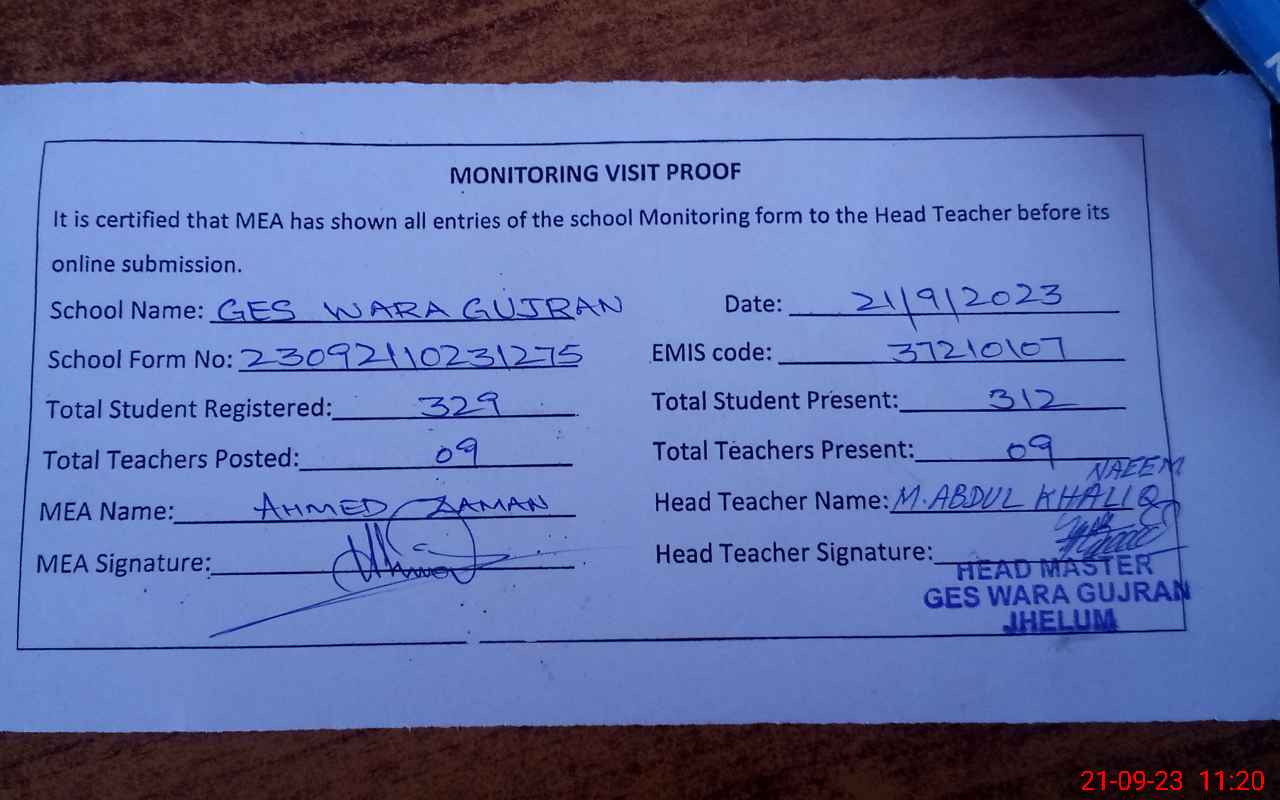 MONITORING VISIT PROOF
It is certified that MEA has shown all entries of the school Monitoring form to the Head Teacher before its
online submission.
School Name: GES WARA GUJRAN Date: 21/9/2023
School Form No: 23092110231275 EMIS code: 37210107
Total Student Registered: 329 Total Student Present: 312
Total Teachers Posted: 09 Total Teachers Present: 09
NAEEM
MEA Name: AHMED ZAMAN Head Teacher Name: M. ABDUL KHALIQ
MEA Signature: Head Teacher Signature:
HEAD MASTER
GES WARA GUJRAN
JHELUM
21-09-23 11:20